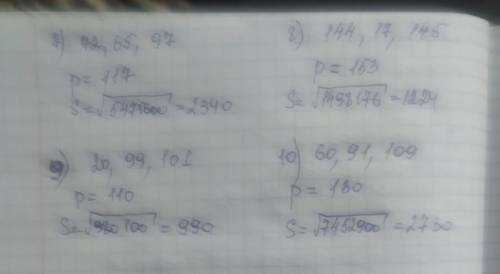 7) 72, 65, 97
p = 117
S = √5475600 = 2340
8) 144, 17, 145
p = 153
S = √1498176 = 1224
9) 20, 99, 101
p = 110
S = √980100 = 990
10) 60, 91, 109
p = 130
S = √7452900 = 2730